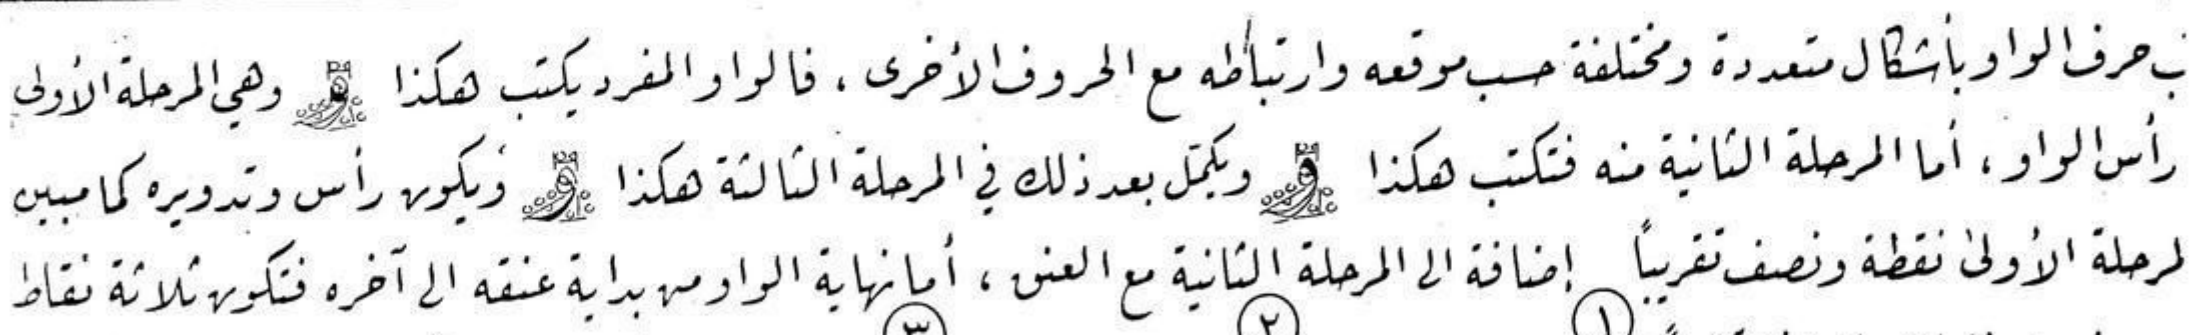 ب حرف الواو بأشكال متعددة ومختلفة حسب موقعه وارتباطه مع الحروف الأخرى ، فالواو المفرد يكتب هكذا وهي المرحلة الأولى
رأس الواو ، أما المرحلة الثانية منه فتكتب هكذا ويكمل بعد ذلك في المرحلة الثالثة هكذا ويكون رأس وتدويره كما مبين
لمرحلة الأولى نقطة ونصف تقريباً إضافة الى المرحلة الثانية مع العنق ، أما نهاية الواو من بداية عنقه الى آخره فتكون ثلاثة نقاط
١ ٢ ٣